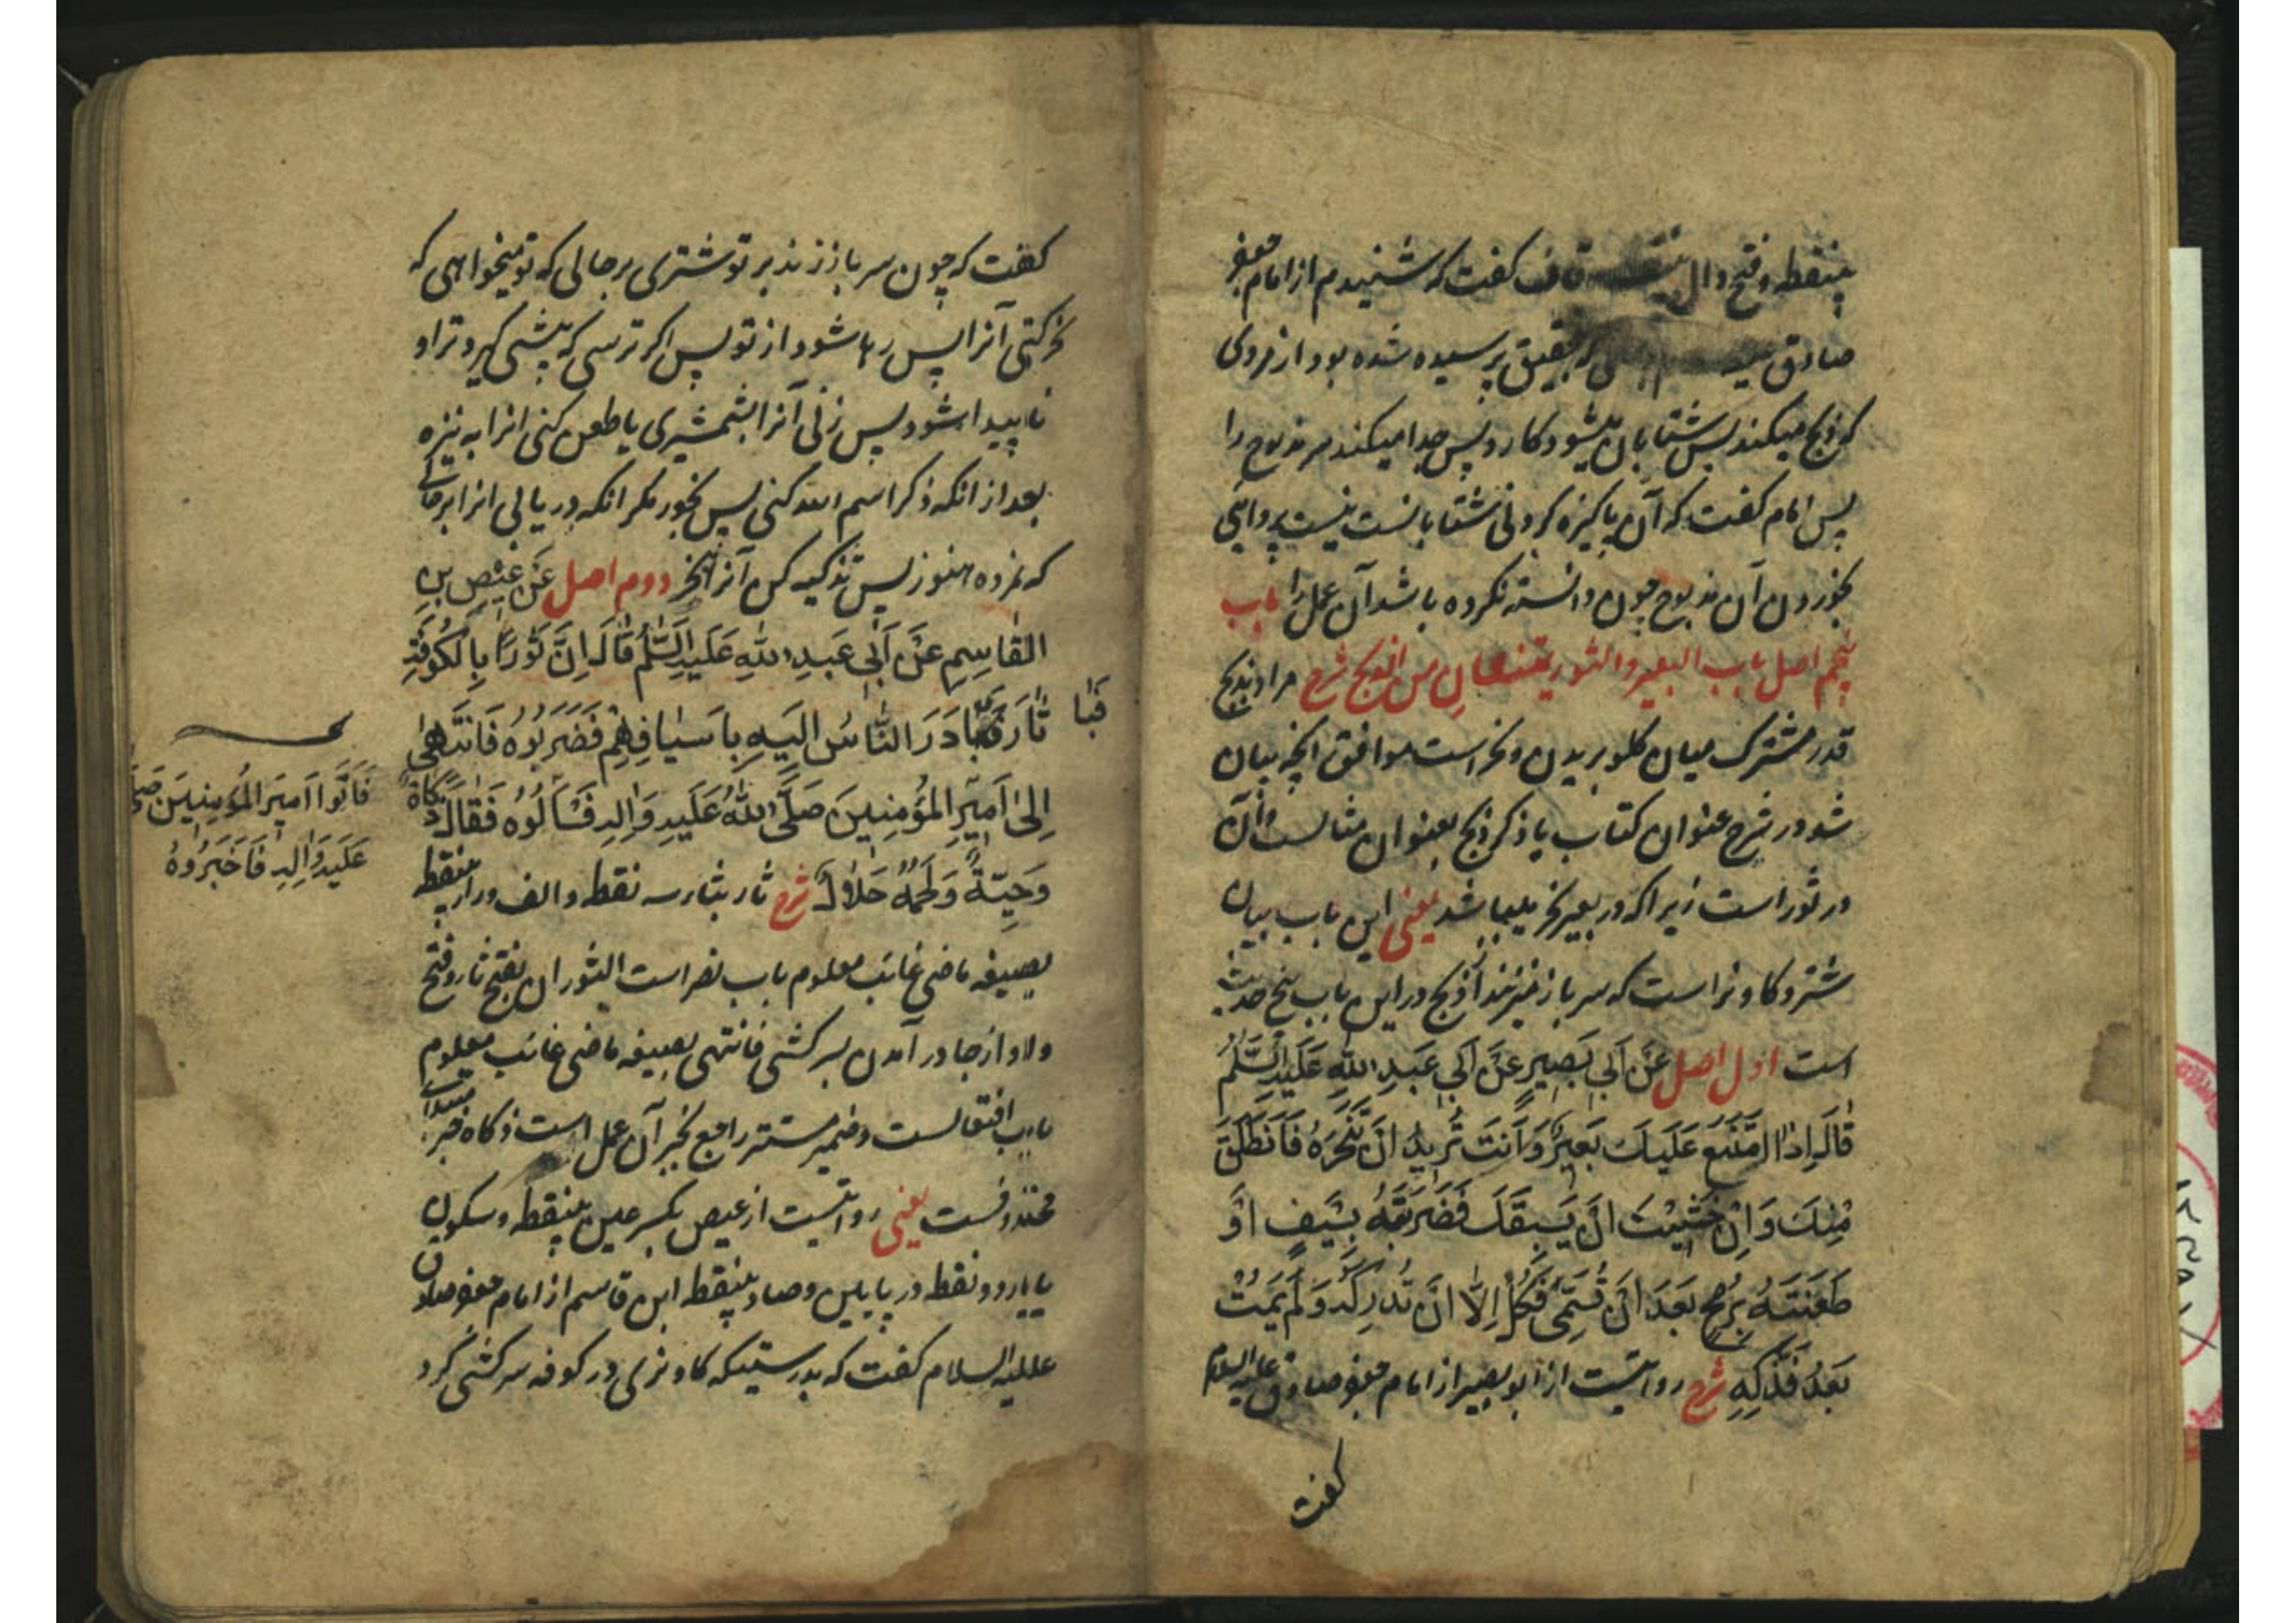 بینقطه و فتح دال قاف کفت که شنیدم از امام جعفر
صادق پرسیده شده بود از مردی
که ذبح میکند پس شتابان میشود کارد پس جدا میکند سر مذبوح را
پس امام کفت که آن پاکیزه کردنی شتابانست نیست پروائی
بخوردن آن مذبوح چون دانسته نکرده باشد آن عمل را باب
پنجم اصل باب البعیر والثور یمتنعان من الذبح شرح مراد بذبح
قدر مشترک میان کلو بریدن و نحر است موافق انچه بیان
شد در شرح عنوان کتاب یا ذکر ذبح بعنوان مثالست و آن
در ثور است زیرا که در بعیر نحر میباشد یعنی این باب بیان
شتر و کاو نر است که سر باز میزنند از ذبح در این باب پنج حدیث
است اول اصل عَنْ اَبِی بَصِیرٍ عَنْ اَبِی عَبدِ اللهِ عَلَیْهِ السَّلٰمُ
قَالَ اِذَا امْتَنَعَ عَلَیكَ بَعِیرٌ وَ اَنتَ تُرِیدُ اَنْ تَنْحَرَهُ فَانطَلَقَ
مِنْكَ وَ اِنْ خَشِیْتَ اَنْ یَسبِقَكَ فَضَرَبْتَهُ بِسَیفٍ اَوْ
طَعَنْتَهُ بِرُمحٍ بَعدَ اَنْ تُسَمِّیَ فَكُلْ اِلَّا اَنْ تُدْرِكَهُ وَ لَمْ یَمُتْ
بَعدُ فَذَكِّهِ شرح روایتست از ابو بصیر از امام جعفر صادق علیه السلام
کفت
کفت که چون سر باز زند بر تو شتری بر حالی که تو میخواهی که
نحر کنی آنرا پس رها شود از تو پس اکر ترسی که پیشی کیرد ترا و
ناپیدا شود پس زنی آنرا بشمشیری یا طعن کنی انرا به نیزه
بعد از انکه ذکر اسم الله کنی پس بخور مکر انکه دریابی انرا بر حالی
که نمرده هنوز پس تذکیه کن آنرا بنحر دوم اصل عَنْ عِیْصِ بنِ
القَاسِمِ عَنْ اَبِی عَبدِ اللهِ عَلَیهِ السَّلٰمُ قَالَ اِنَّ ثَوْرًا بِالْكُوفَةِ
ثَارَ فَبَادَرَ النَّاسُ اِلَیهِ بِاَسیَافِهِمْ فَضَرَبُوهُ فَانتَهیٰ
فَبَا
اِلیٰ اَمِیرِ المُؤمِنِینَ صَلَّی اللهُ عَلَیهِ وَ اٰلِهِ فَسَاَلُوهُ فَقَالَ ذَكَاةٌ
فَاَتَوا اَمِیرَ المُؤمِنِینَ صَ
عَلَیهِ وَ اٰلِهِ فَاَخبَرُوهُ
وَحِیَّةٌ وَ لَحمُهُ حَلَالٌ شرح ثار بثاء سه نقطه و الف و راء بینقطه
بصیغه ماضی غائب معلوم باب نصر است الثوران بفتح ثاء و فتح
واو از جا در آمدن بسر کشی فانتهی بصیغه ماضی غائب معلوم
باب افتعالست و ضمیر مستتر راجع بخبر آن عمل است ذکاه خبر مبتداء
محذوفست یعنی روایتست از عیص بکسر عین بینقطه و سکون
یاء دو نقطه در پایین و صاد بینقطه ابن قاسم از امام جعفر صادق
علیه السلام کفت که بدرستیکه کاو نری در کوفه سر کشی کرد